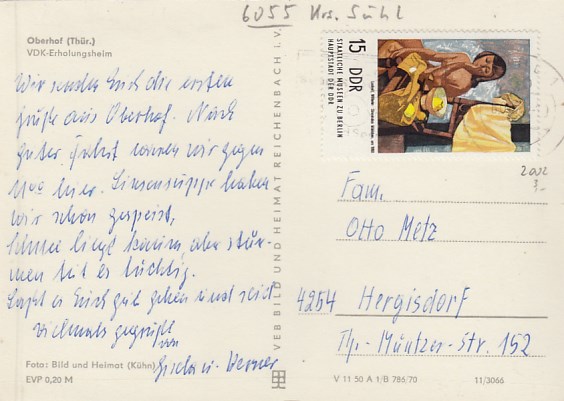 6055 Krs. Suhl
Oberhof (Thür.)
VDK-Erholungsheim
Wir senden Euch die ersten
Grüße aus Oberhof. Nach
guter Fahrt waren wir gegen
11°° hier. Linsensuppe haben
wir schon gespeist,
Schnee liegt kaum, aber stür-
men tut es tüchtig.
Laßt es Euch gut gehen und seid
vielmals gegrüßt
von
Gisela u. Werner
Foto: Bild und Heimat (Kühn)
EVP 0,20 M
VEB BILD UND HEIMAT REICHENBACH I. V.
15
DDR
STAATLICHE MUSEEN ZU BERLIN
HAUPTSTADT DER DDR
2002
3,-
Fam.
Otto Metz
4254 Hergisdorf
Th.-Müntzer-Str. 152
V 11 50 A 1/B 786/70
11/3066